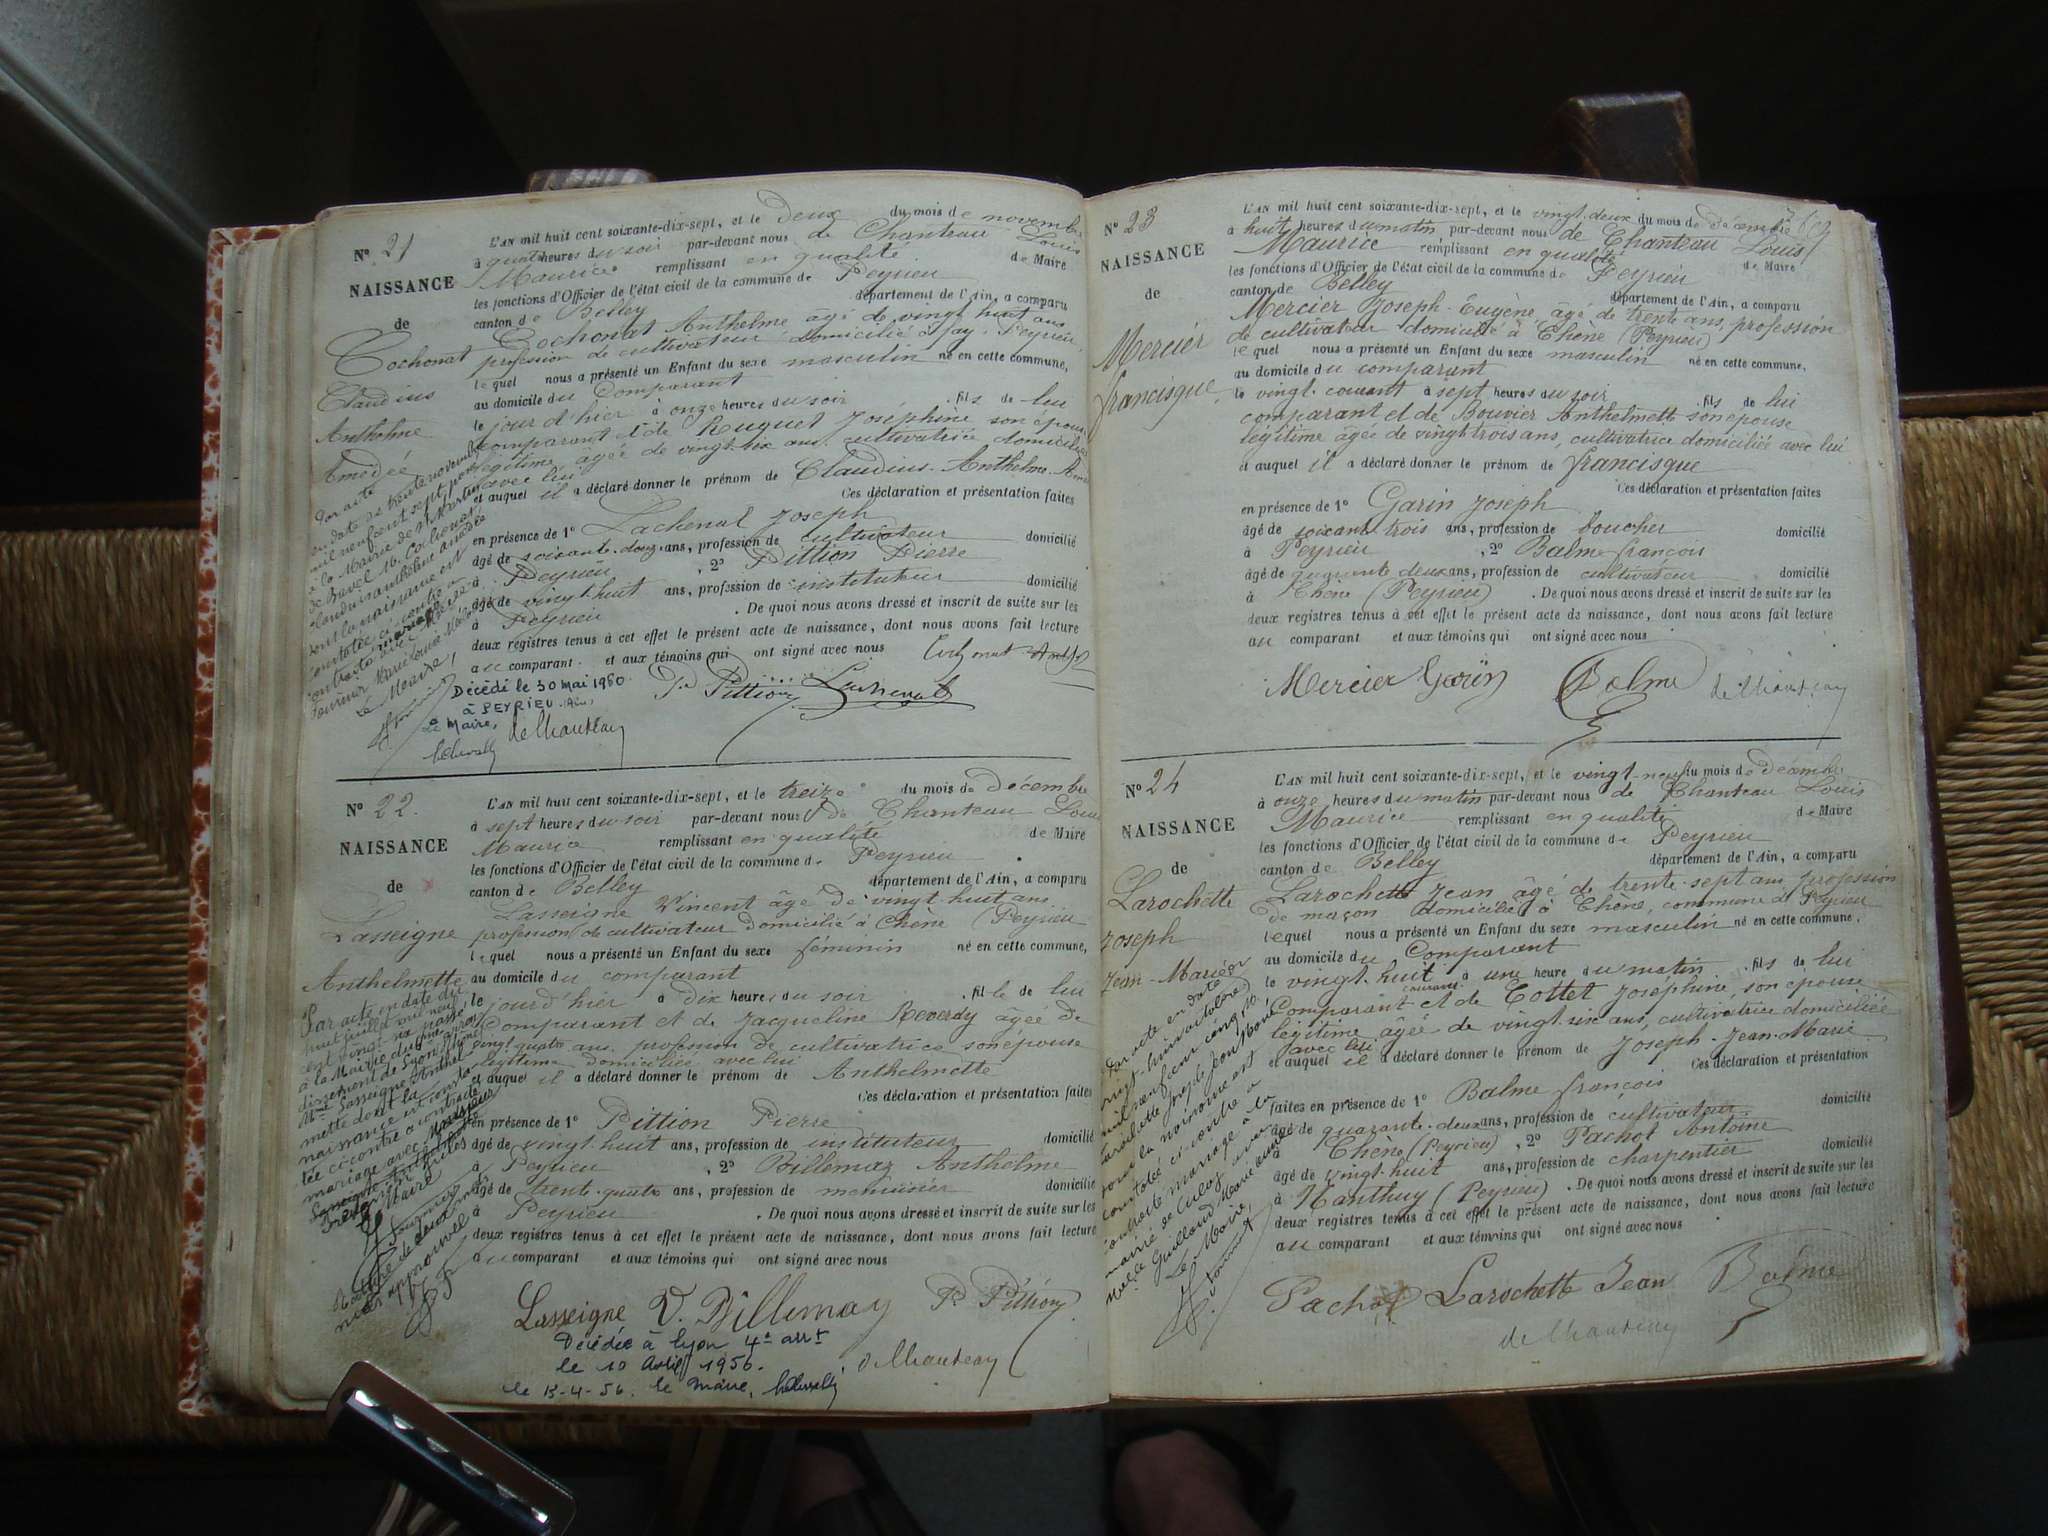 N° 21
NAISSANCE
de
Cochonat
Claudius
Anthelme
Amédée
L'AN mil huit cent soixante-dix-sept, et le deux du mois de novembre
à quatre heures du soir par-devant nous de Chanteau Louis
Maurice remplissant en qualité de Maire
les fonctions d'Officier de l'état civil de la commune de Peyrieu
canton de Belley département de l'Ain, a comparu
Cochonat Anthelme âgé de vingt huit ans
profession de cultivateur domicilié à Peyrieu,
lequel nous a présenté un Enfant du sexe masculin né en cette commune,
au domicile du Comparant
le jour d'hier à onze heures du soir fils de lui
comparant et de Huguet Joséphine son épouse
légitime âgée de vingt six ans cultivatrice domiciliée
avec lui
et auquel il a déclaré donner le prénom de Claudius-Anthelme
Ces déclaration et présentation faites
en présence de 1° Lachenal Joseph
âgé de soixante-douze ans, profession de cultivateur domicilié
à Peyrieu, 2° Pittion Pierre
âgé de vingt huit ans, profession de instituteur domicilié
à Peyrieu. De quoi nous avons dressé et inscrit de suite sur les
deux registres tenus à cet effet le présent acte de naissance, dont nous avons fait lecture
au comparant et aux témoins qui ont signé avec nous
Par acte
en date du trente novembre
mil neuf cent sept passé
à la Mairie de St Martin
de Bavel M. Cochonat
Claudius Anthelme Amédée
dont la naissance est
constatée ci-contre a
contracté mariage
Le Maire,
Cochonat
Pre Pittion Lachenal
Décédé le 30 mai 1960
à PEYRIEU (Ain)
Le Maire,
de Chanteau
N° 22.
NAISSANCE
de
Lasseigne
Anthelmette
L'AN mil huit cent soixante-dix-sept, et le treize du mois de Décembre
à sept heures du soir par-devant nous de Chanteau Louis
Maurice remplissant en qualité de Maire
les fonctions d'Officier de l'état civil de la commune de Peyrieu
canton de Belley département de l'Ain, a comparu
Lasseigne Vincent âgé de vingt huit ans
profession de cultivateur domicilié à Chêne (Peyrieu
lequel nous a présenté un Enfant du sexe féminin né en cette commune,
au domicile du comparant
le jour d'hier à dix heures du soir fille de lui
Comparant et de Jacqueline Reverdy âgée de
vingt quatre ans profession de cultivatrice son épouse
légitime domiciliée avec lui
et auquel il a déclaré donner le prénom de Anthelmette
Ces déclaration et présentation faites
en présence de 1° Pittion Pierre
âgé de vingt huit ans, profession de instituteur domicilié
à Peyrieu, 2° Billemaz Anthelme
âgé de trente-quatre ans, profession de menuisier domicilié
à Peyrieu. De quoi nous avons dressé et inscrit de suite sur les
deux registres tenus à cet effet le présent acte de naissance, dont nous avons fait lecture
au comparant et aux témoins qui ont signé avec nous
Par acte en date du
huit juillet mil neuf
cent vingt passé
à la Mairie du
arrondissement de Lyon
Lasseigne Anthel
mette dont la
naissance est consta
tée ci-contre a contracté
mariage avec
Le Maire
Lasseigne V. Billemaz Pre Pittion
Décédée à Lyon 4e arrt
le 10 Avril 1956.
le 13-4-56. le Maire,
de Chanteau
N° 23
NAISSANCE
de
Mercier
francisque
L'AN mil huit cent soixante-dix-sept, et le vingt-deux du mois de Décembre
à huit heures du matin par-devant nous de Chanteau Louis
Maurice remplissant en qualité de Maire
les fonctions d'Officier de l'état civil de la commune de Peyrieu
canton de Belley département de l'Ain, a comparu
Mercier Joseph-Eugène, âgé de trente ans, profession
de cultivateur domicilié à Chêne (Peyrieu)
lequel nous a présenté un Enfant du sexe masculin né en cette commune,
au domicile du comparant
le vingt courant à sept heures du soir fils de lui
comparant et de Bouvier Anthelmette son épouse
légitime âgée de vingt trois ans, cultivatrice domiciliée avec lui
et auquel il a déclaré donner le prénom de francisque
Ces déclaration et présentation faites
en présence de 1° Garin Joseph
âgé de soixante trois ans, profession de boucher domicilié
à Peyrieu, 2° Balme françois
âgé de quarante deux ans, profession de cultivateur domicilié
à Chêne (Peyrieu). De quoi nous avons dressé et inscrit de suite sur les
deux registres tenus à cet effet le présent acte de naissance, dont nous avons fait lecture
au comparant et aux témoins qui ont signé avec nous
Mercier Garin Balme de Chanteau
N° 24
NAISSANCE
de
Larochette
Joseph
Jean-Marie
L'AN mil huit cent soixante-dix-sept, et le vingt-neuf du mois de Décembre
à onze heures du matin par-devant nous de Chanteau Louis
Maurice remplissant en qualité de Maire
les fonctions d'Officier de l'état civil de la commune de Peyrieu
canton de Belley département de l'Ain, a comparu
Larochette Jean âgé de trente-sept ans profession
de maçon domicilié à Chêne, commune de Peyrieu
lequel nous a présenté un Enfant du sexe masculin né en cette commune,
au domicile du Comparant
le vingt-huit courant à une heure du matin fils de lui
Comparant et de Cottet Joséphine, son épouse
légitime âgée de vingt six ans, cultivatrice domiciliée
avec lui
et auquel il a déclaré donner le prénom de Joseph-Jean-Marie
Ces déclaration et présentation
faites en présence de 1° Balme françois
âgé de quarante-deux ans, profession de cultivateur domicilié
à Chêne (Peyrieu), 2° Pachot Antoine
âgé de vingt huit ans, profession de charpentier domicilié
à Nanthuy (Peyrieu). De quoi nous avons dressé et inscrit de suite sur les
deux registres tenus à cet effet le présent acte de naissance, dont nous avons fait lecture
au comparant et aux témoins qui ont signé avec nous
Par acte en date du
vingt-huit octobre
mil neuf cent cinq
Larochette Joseph Jean Marie
dont la naissance est
constatée ci-contre a
contracté mariage à la
mairie de Culoz avec
Melle Guilland Marie
Le Maire,
Pachot Larochette Jean Balme
de Chanteau